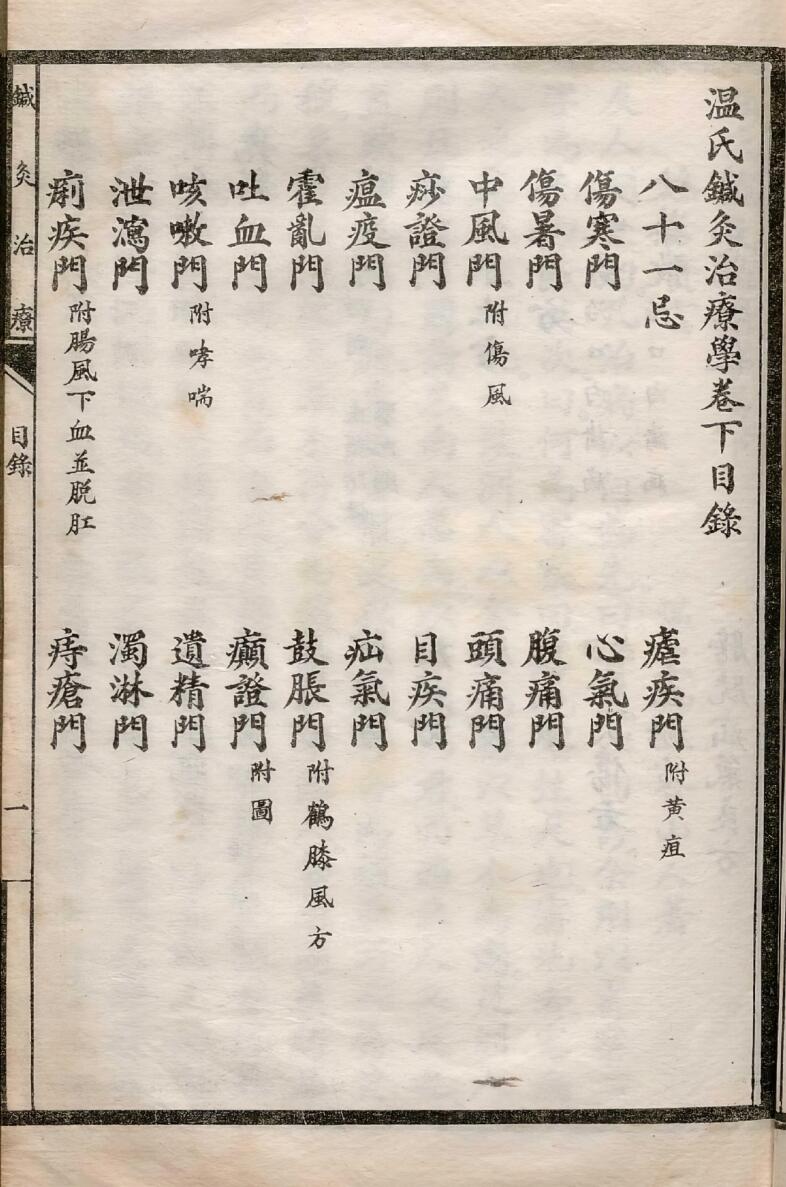 温氏鍼灸治療學卷下目錄
八十一忌
瘧疾門 附黄疸
傷寒門
心氣門
傷暑門
腹痛門
中風門 附傷風
頭痛門
痧證門
目疾門
瘟疫門
疝氣門
霍亂門
鼓脹門 附鶴膝風方
吐血門
癲證門 附圖
咳嗽門 附哮喘
遺精門
泄瀉門
濁淋門
痢疾門 附腸風下血並脱肛
痔瘡門
鍼灸治療
目錄
一